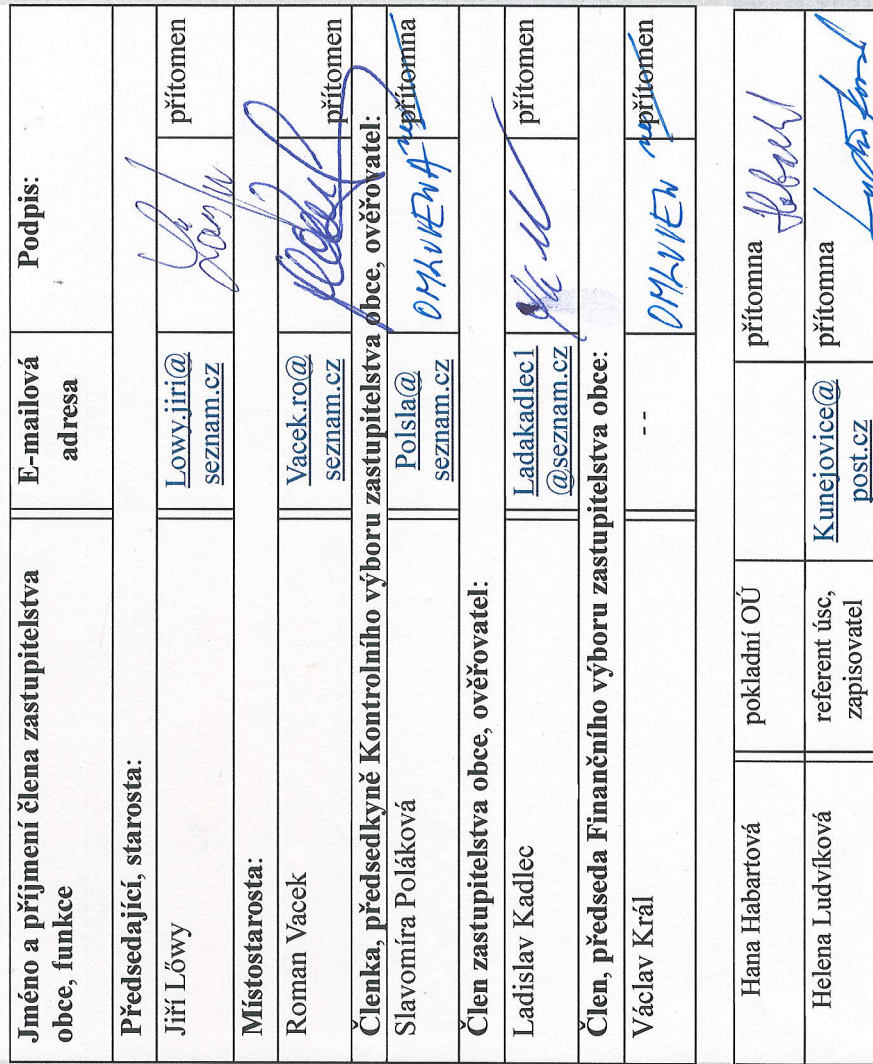 Jméno a příjmení člena zastupitelstva obce, funkce
E-mailová adresa
Podpis:
Předsedající, starosta:
Jiří Lőwy
Lowy.jiri@
seznam.cz
přítomen
Místostarosta:
Roman Vacek
Vacek.ro@
seznam.cz
přítomen
Členka, předsedkyně Kontrolního výboru zastupitelstva obce, ověřovatel:
Slavomíra Poláková
Polsla@
seznam.cz
OMLUVENA
nepřítomna
Člen zastupitelstva obce, ověřovatel:
Ladislav Kadlec
Ladakadlec1
@seznam.cz
přítomen
Člen, předseda Finančního výboru zastupitelstva obce:
Václav Král
--
OMLUVEN
nepřítomen
Hana Habartová
pokladní OÚ
přítomna
Helena Ludvíková
referent úsc,
zapisovatel
Kunejovice@
post.cz
přítomna